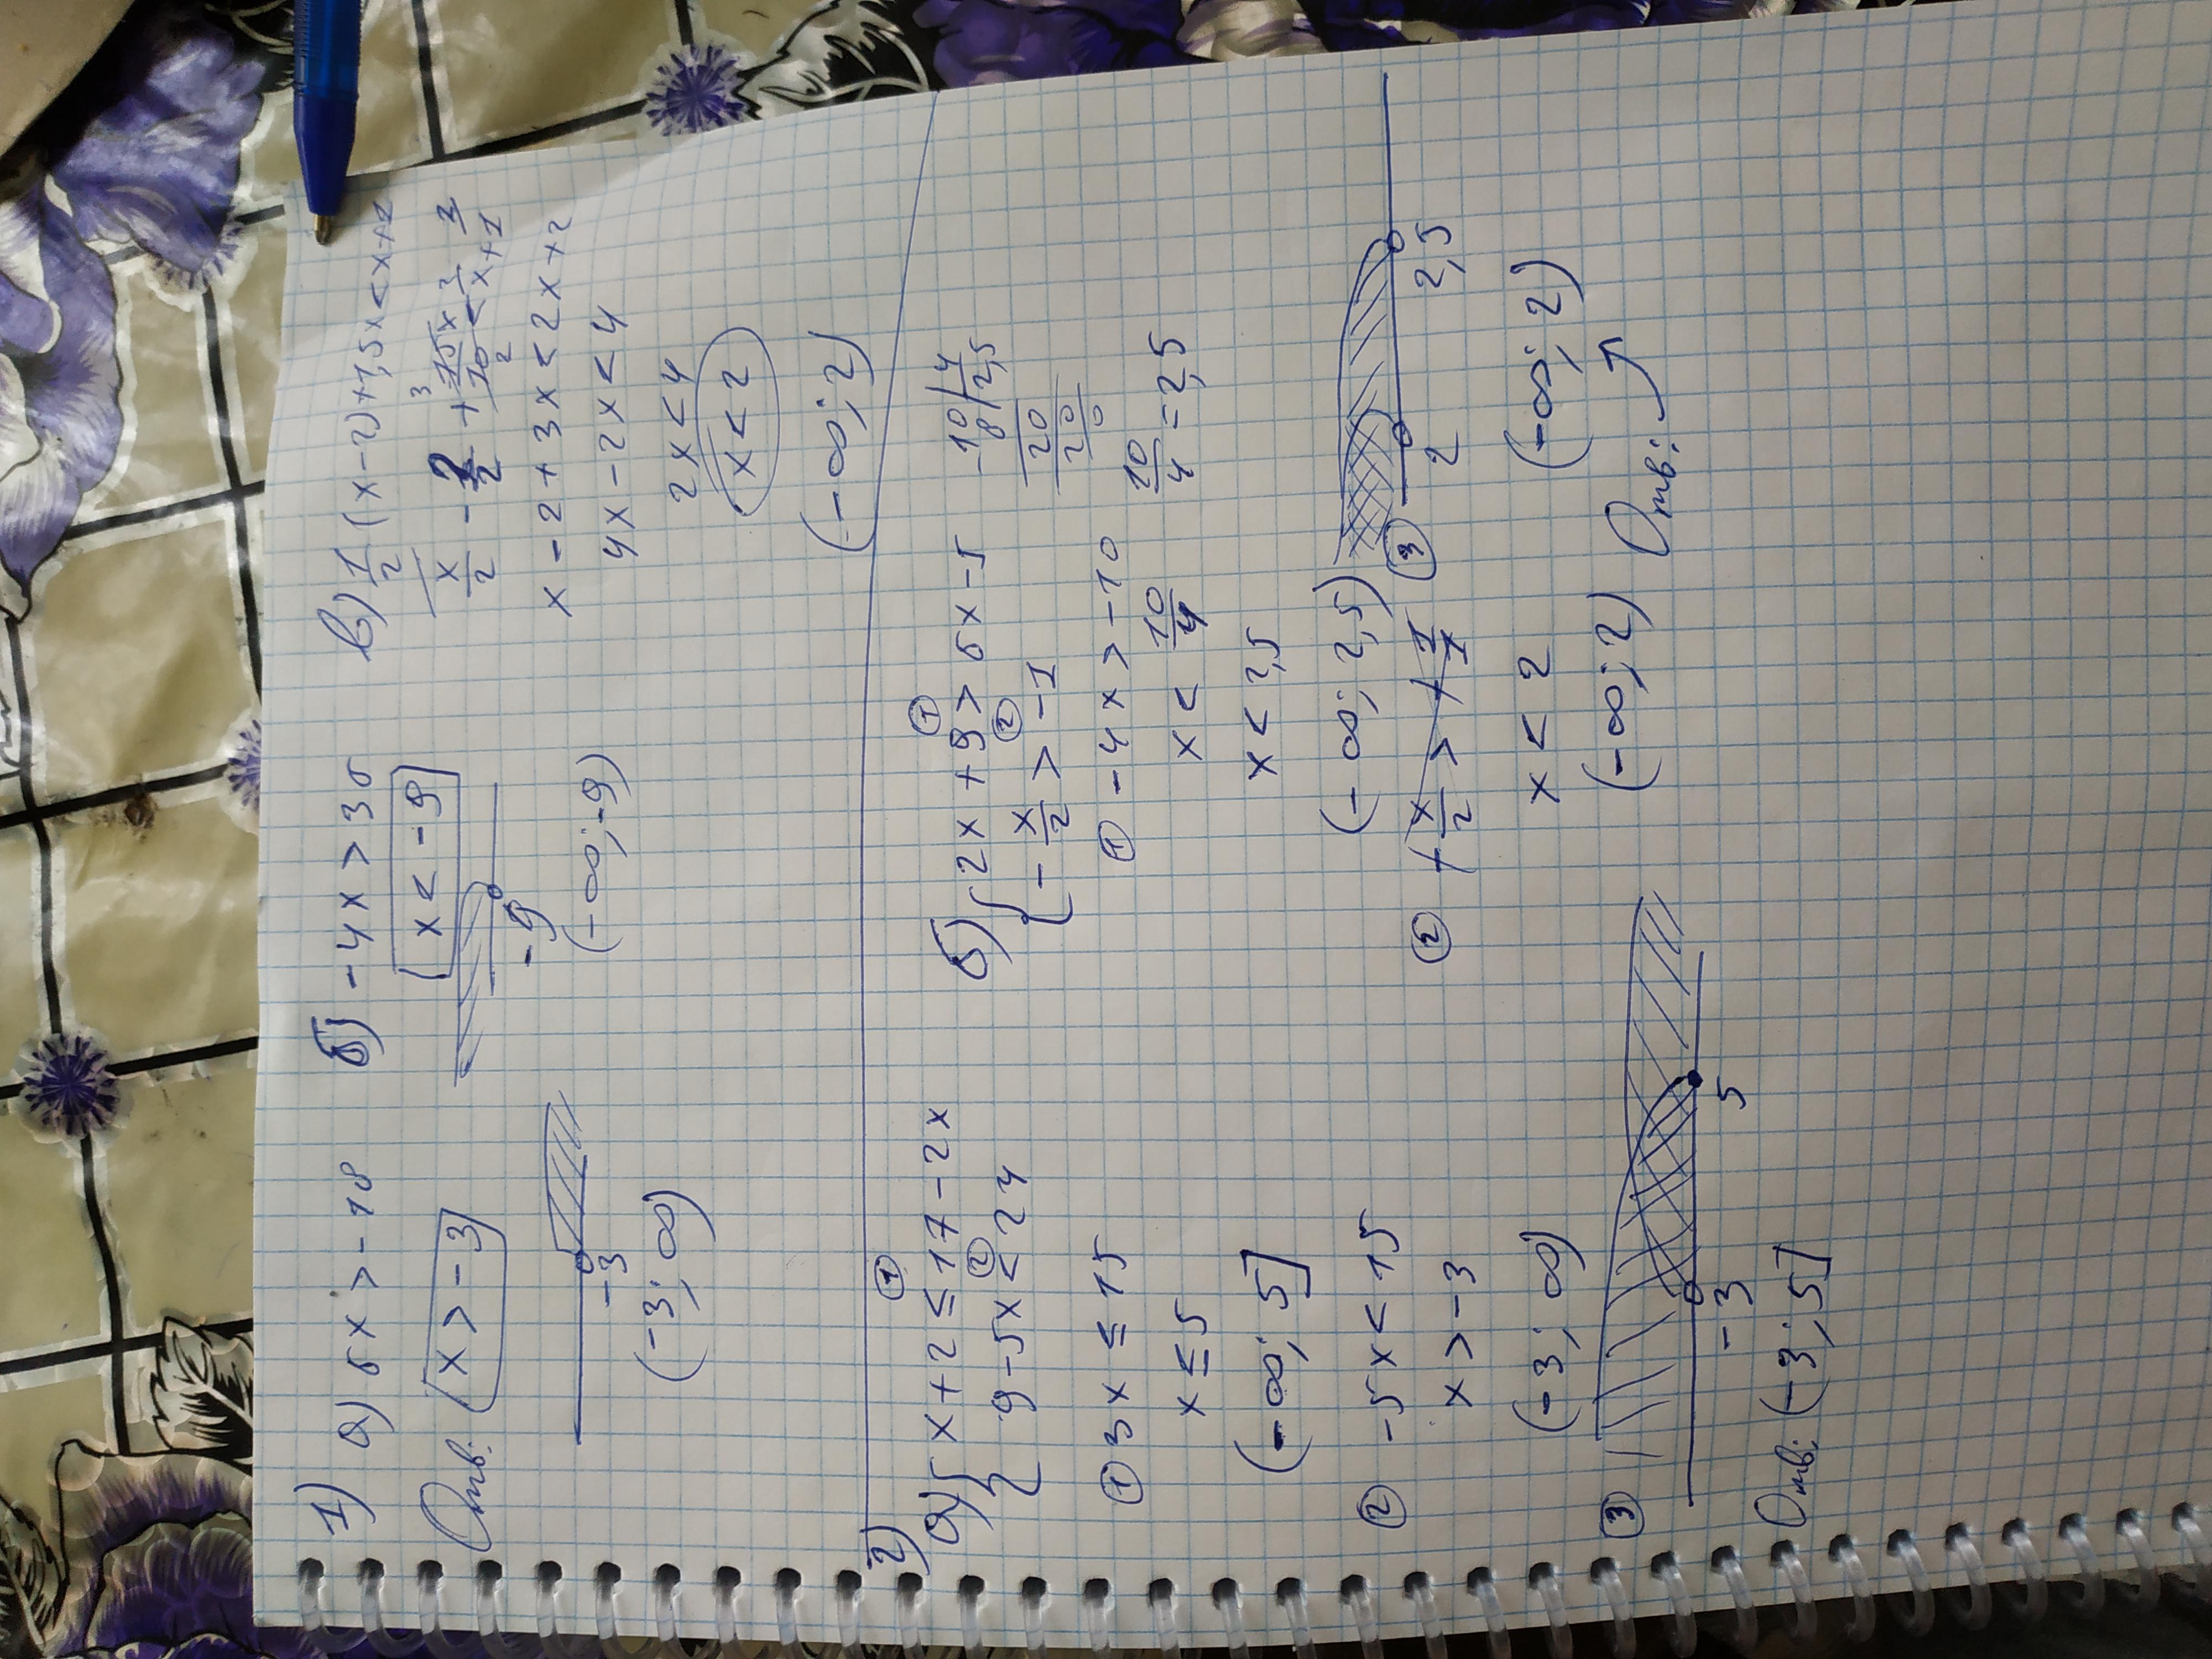 1) а) 6x > -18
Отв: x > -3
-3
(-3; ∞)
б) -4x > 36
x < -9
-9
(-∞; -9)
в) 1/2 (x-2)+1,5x < x+1
x/2 - 2/2 + 15x/10 < x+1
x - 2 + 3x < 2x + 2
4x - 2x < 4
2x < 4
x < 2
(-∞; 2)
2)
а) { x+2 ≤ 17-2x ①
9-5x < 24 ②
① 3x ≤ 15
x ≤ 5
(-∞; 5]
② -5x < 15
x > -3
(-3; ∞)
③
-3 5
Отв: (-3; 5]
б) { 2x + 9 > 6x - 5 ①
-x/2 > -1 ②
① -4x > -10
x < 10/4
x < 2,5
(-∞; 2,5)
-10 | 4
8 | 2,5
20
20
0
10/4 = 2,5
② -x/2 > -1/1
x < 2
(-∞; 2)
③
2 2,5
(-∞; 2)
Отв: